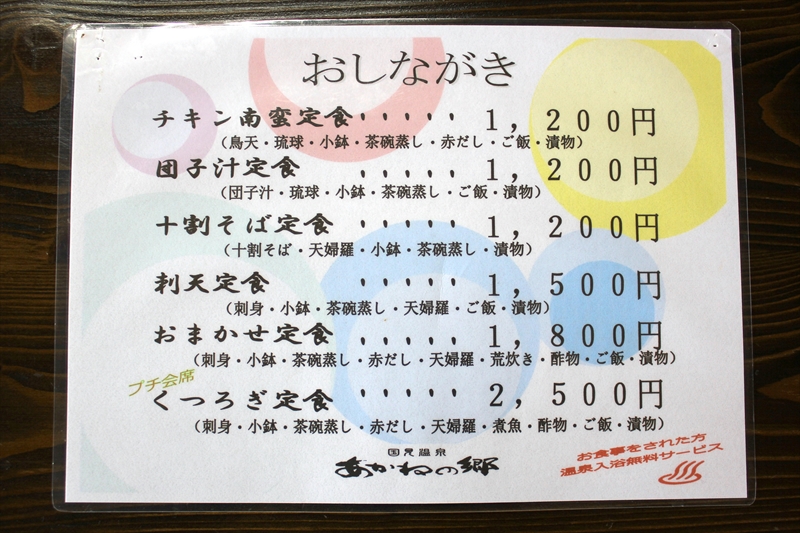 おしながき
チキン南蛮定食・・・・・1,200円
(鳥天・琉球・小鉢・茶碗蒸し・赤だし・ご飯・漬物)
団子汁定食 ・・・・・1,200円
(団子汁・琉球・小鉢・茶碗蒸し・ご飯・漬物)
十割そば定食 ・・・・・1,200円
(十割そば・天婦羅・小鉢・茶碗蒸し・漬物)
刺天定食 ・・・・・1,500円
(刺身・小鉢・茶碗蒸し・天婦羅・ご飯・漬物)
おまかせ定食 ・・・・・1,800円
(刺身・小鉢・茶碗蒸し・赤だし・天婦羅・荒炊き・酢物・ご飯・漬物)
プチ会席
くつろぎ定食 ・・・・・2,500円
(刺身・小鉢・茶碗蒸し・赤だし・天婦羅・煮魚・酢物・ご飯・漬物)
国見温泉
あかねの郷
お食事をされた方
温泉入浴無料サービス